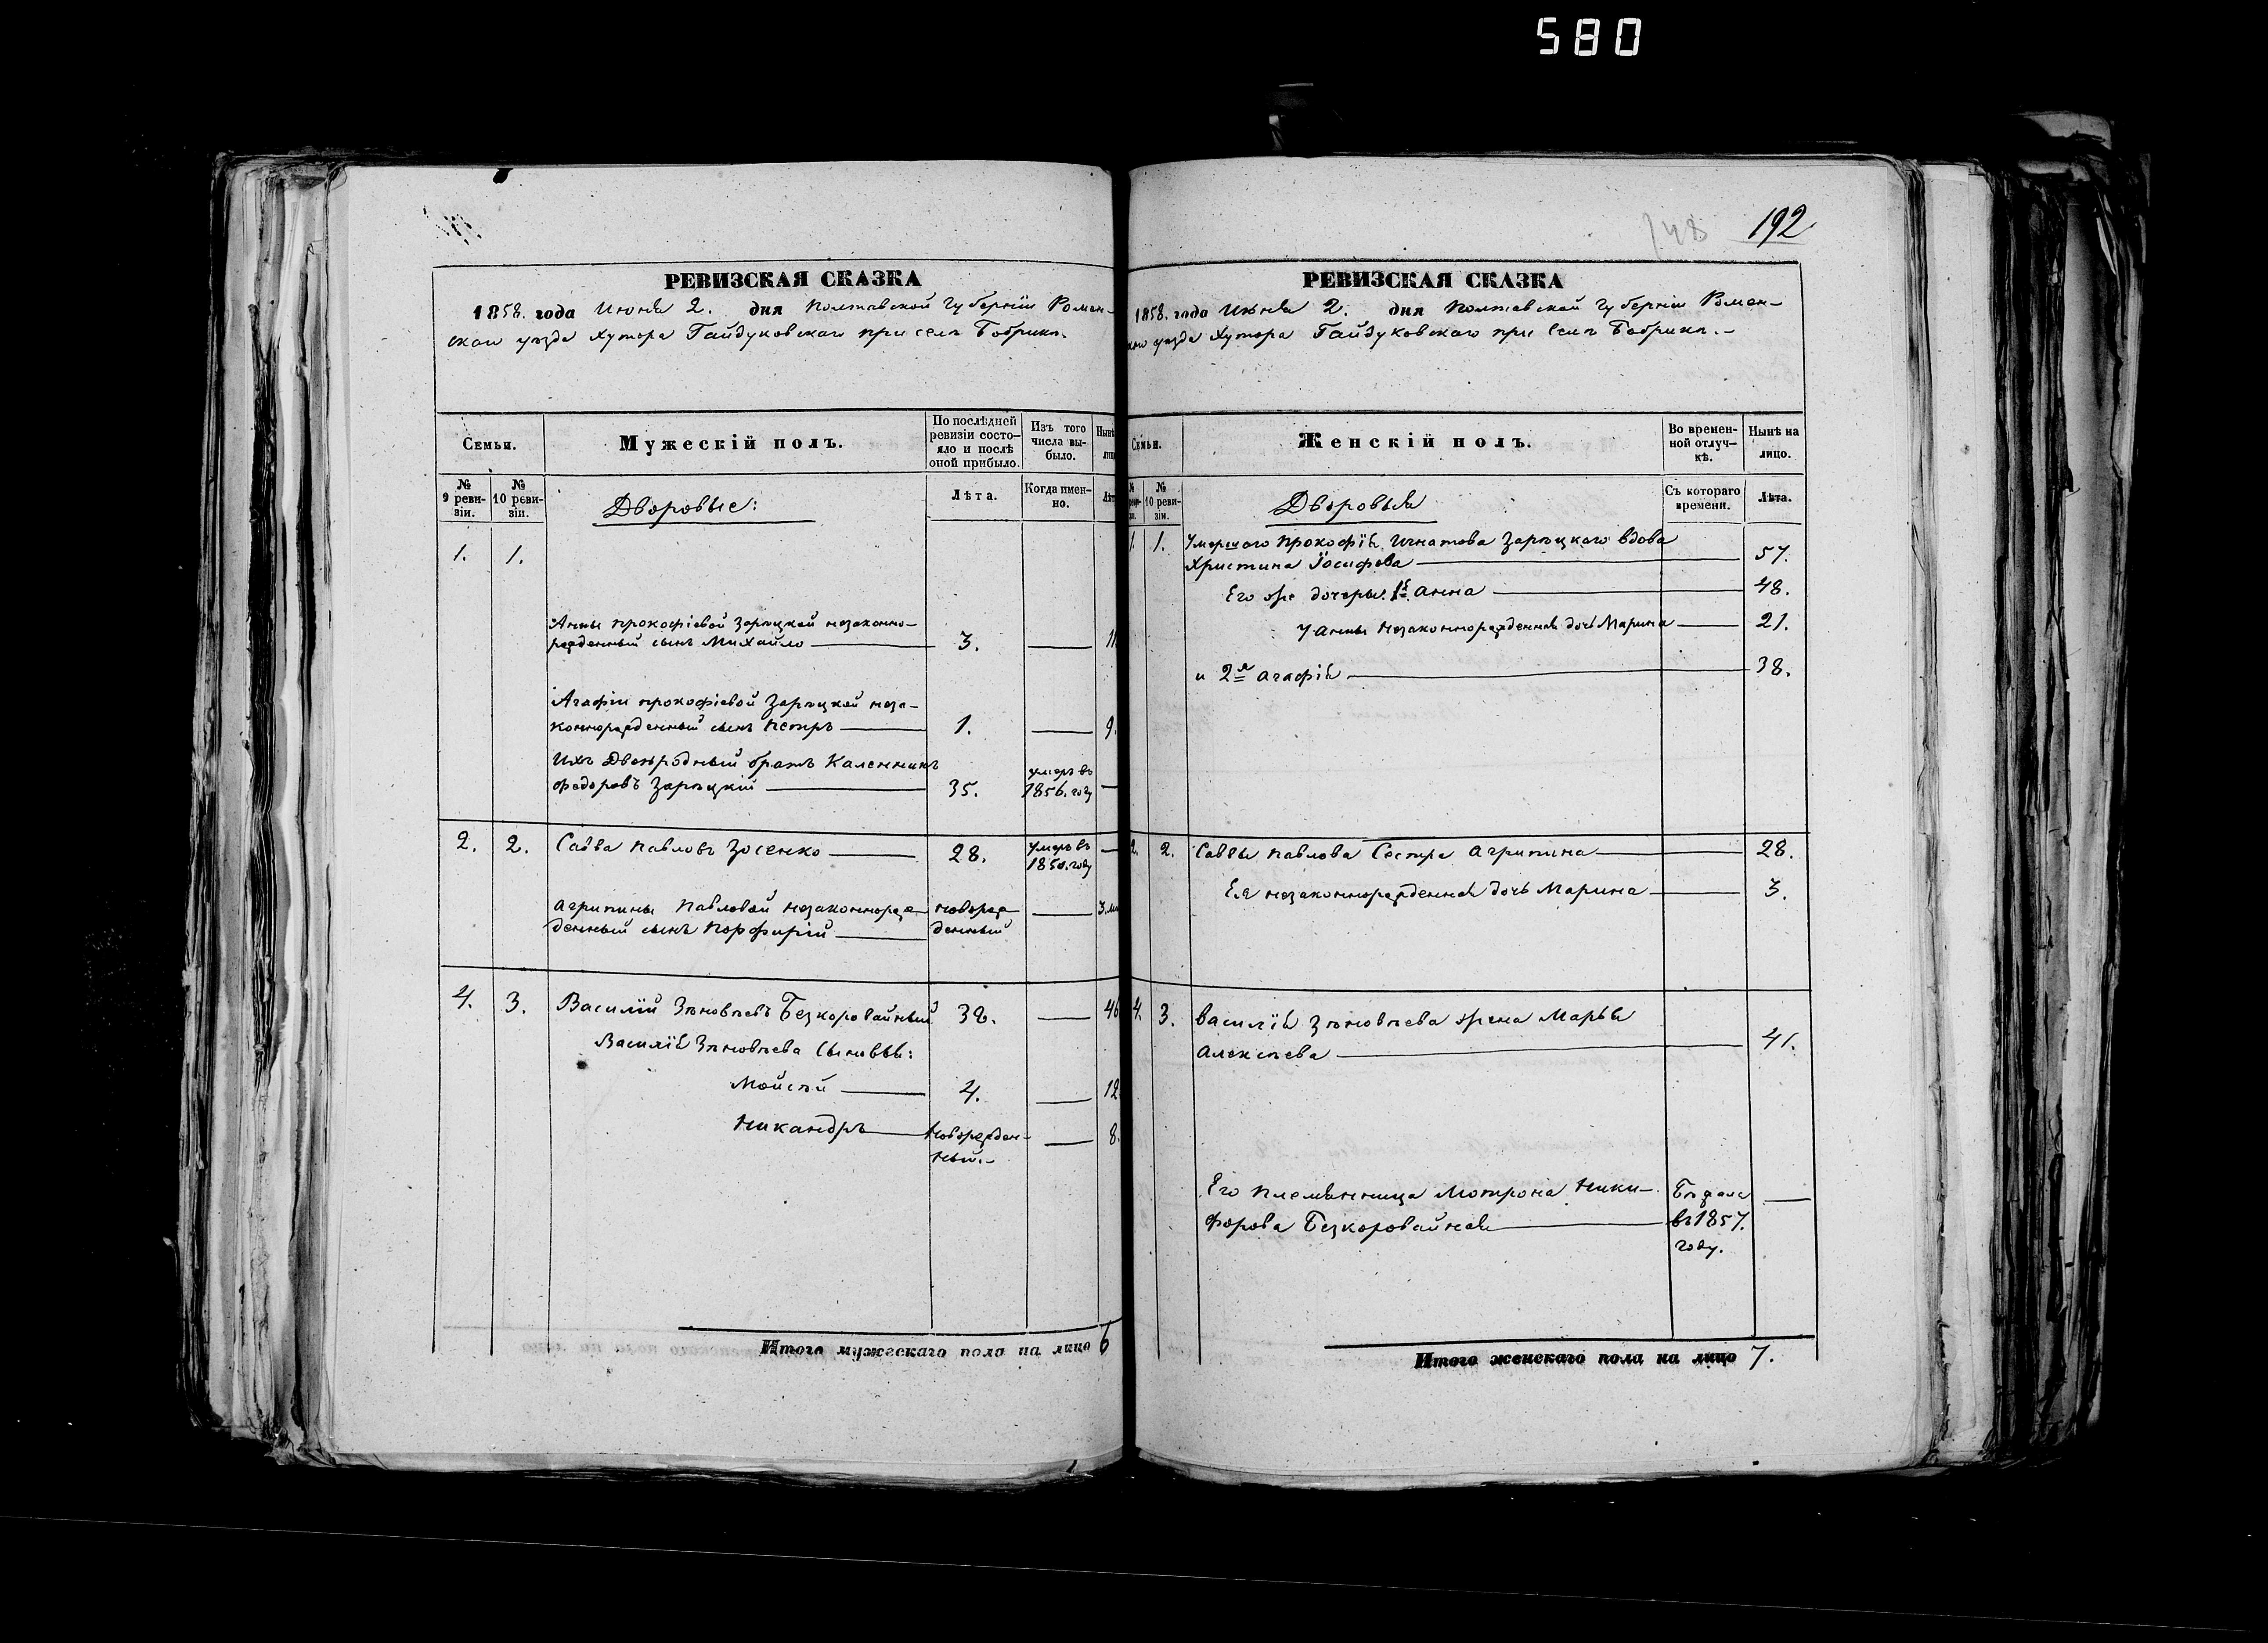 580
148 192
РЕВИЗСКАЯ СКАЗКА
1858. года Июня 2. дня Полтавской Губерніи Ромен-
скаго уѣзда Хутора Гайдуковскаго при селѣ Бобрикѣ.
Семьи.
Мужескій полъ.
По послѣдней ревизіи состо-яло и послѣ оной прибыло.
Изъ того числа вы-было.
Нынѣ
№ 9 реви-зіи.
№ 10 реви-зіи.
Дворовые:
Лѣта.
Когда имен-но.
1. 1.
Анны Прокофіевой Зарѣцкой незаконно-
рожденный сынъ Михайло 3. 11
Агафіи Прокофіевой Зарѣцкой неза-
коннорожденный сынъ Петръ 1. 9.
Ихъ Двоюродный братъ Каленникъ умеръ въ
Федоровъ Зарѣцкій 35. 1856. году
2. 2. Савва Павловъ Зосенко 28. умеръ въ
1850. году
Агрипины Павловой незаконнорож- новорож- 3.
денный сынъ Порфирій денный
4. 3. Василій Зѣновѣевъ Безкоровайный 38. 46
Василія Зѣновѣева сыновья:
Мойсѣй 4. 12
Никандръ новорожден- 8.
ный.-
Итого мужескаго пола на лицо 6
РЕВИЗСКАЯ СКАЗКА
1858. года Июня 2. дня Полтавской Губерніи Ромен-
скаго уѣзда Хутора Гайдуковскаго при селѣ Бобрикѣ.-
Семьи.
Женскій полъ.
Во времен-ной отлуч-кѣ.
Нынѣ на лицо.
№ 10 реви-зіи.
Дворовыя
Съ котораго времени.
Лѣта.
1. 1. Умершаго Прокофія Игнатова Зарѣцкаго вдова
Христина Іосифова 57.
Его же дочери: 1я Анна 48.
У Анны незаконнорожденная дочь Марина 21.
и 2я Агафія 38.
2. 2. Саввы Павлова Сестра Агрипина 28.
Ея незаконнорожденная дочь Марина 3.
4. 3. Василія Зѣновѣева жена Марья
Алексѣева 41.
Его племянница Мотрона Ники- Бѣжала
форова Безкоровайная въ 1857.
году.
Итого женскаго пола на лицо 7.